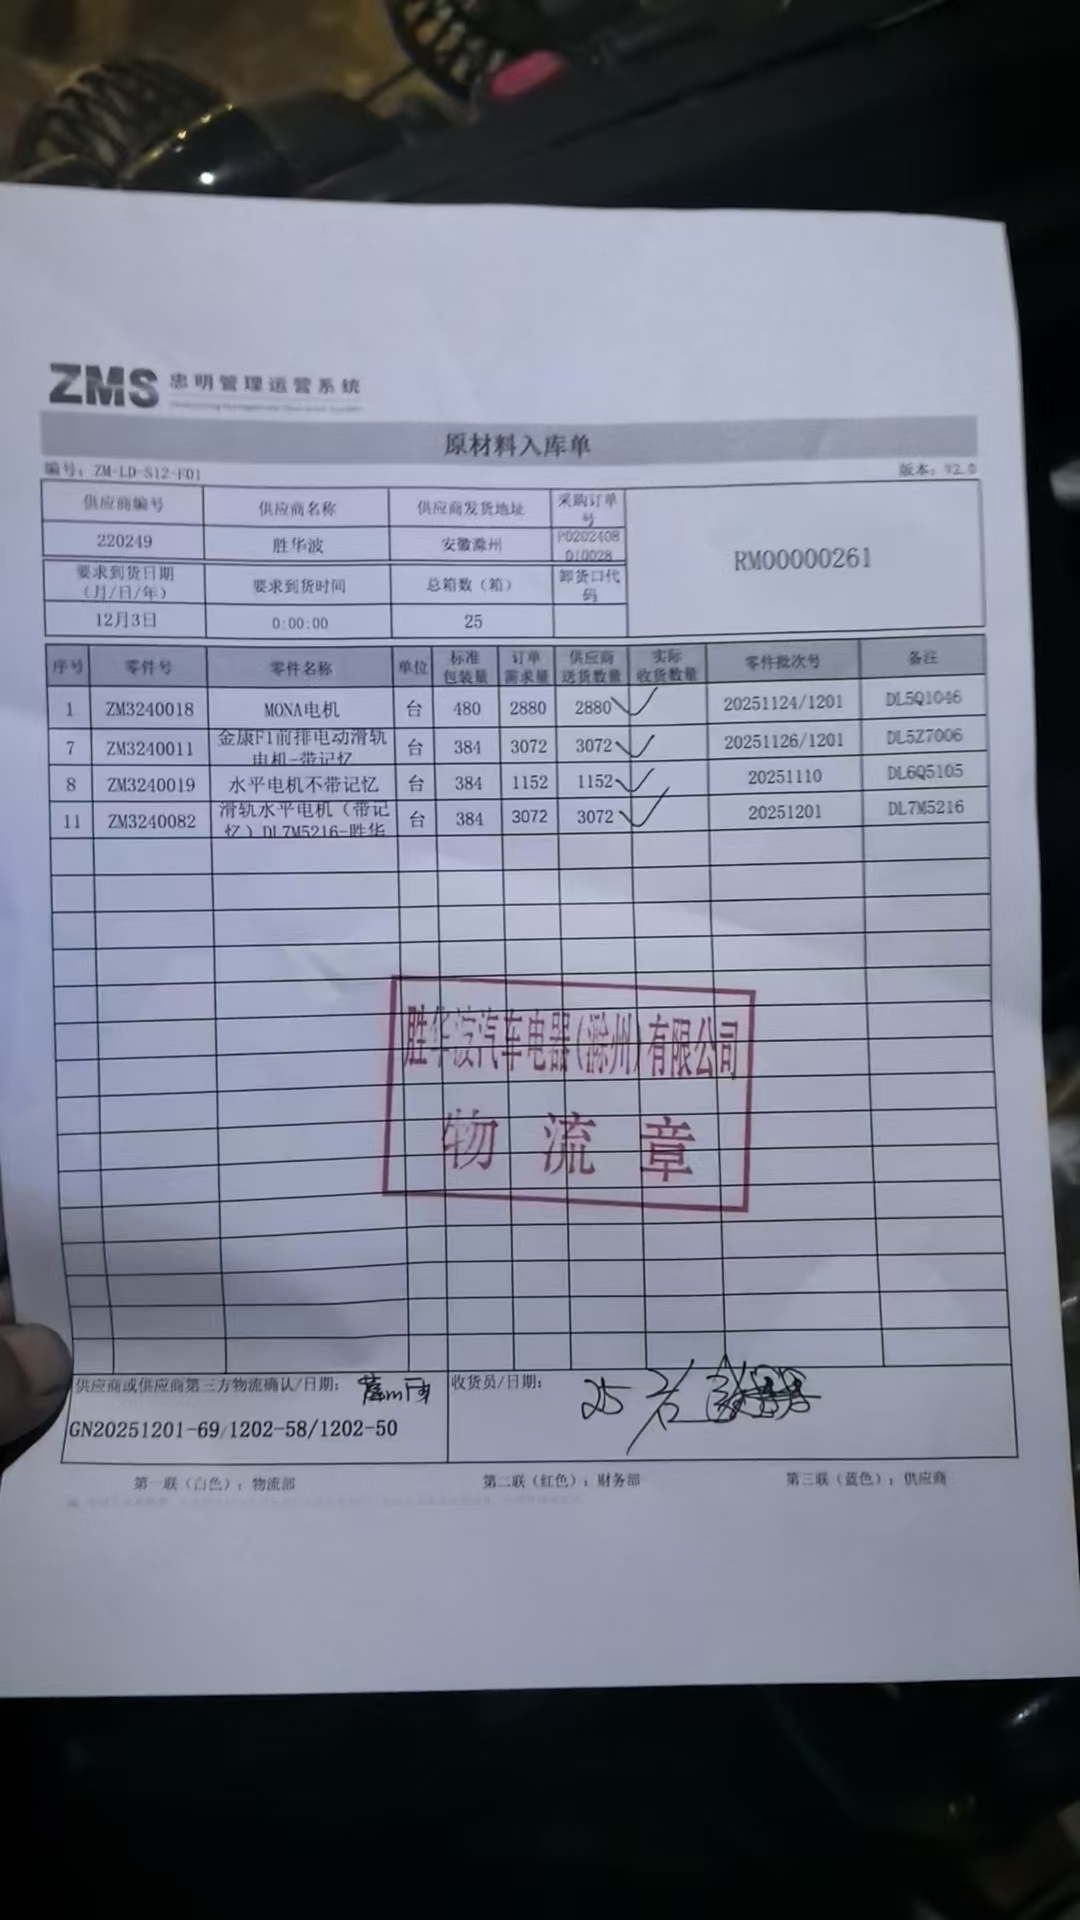 ZMS 忠明管理运营系统
原材料入库单
编号: ZM-LD-S12-F01 版本: V2.0
供应商编号 供应商名称 供应商发货地址 采购订单号
220249 胜华波 安徽滁州 PO202408010028 RM00000261
要求到货日期(月/日/年) 要求到货时间 总箱数(箱) 卸货口代码
12月3日 0:00:00 25
序号 零件号 零件名称 单位 标准包装量 订单需求量 供应商送货数量 实际收货数量 零件批次号 备注
1 ZM3240018 MONA电机 台 480 2880 2880 ✓ 20251124/1201 DL5Q1046
7 ZM3240011 金康F1前排电动滑轨电机-带记忆 台 384 3072 3072 ✓ 20251126/1201 DL5Z7006
8 ZM3240019 水平电机不带记忆 台 384 1152 1152 ✓ 20251110 DL6Q5105
11 ZM3240082 滑轨水平电机(带记忆)DL7M5216-胜华 台 384 3072 3072 ✓ 20251201 DL7M5216
胜华波汽车电器(滁州)有限公司
物流章
供应商或供应商第三方物流确认/日期: 收货员/日期: 25
GN20251201-69/1202-58/1202-50
第一联(白色): 物流部 第二联(红色): 财务部 第三联(蓝色): 供应商